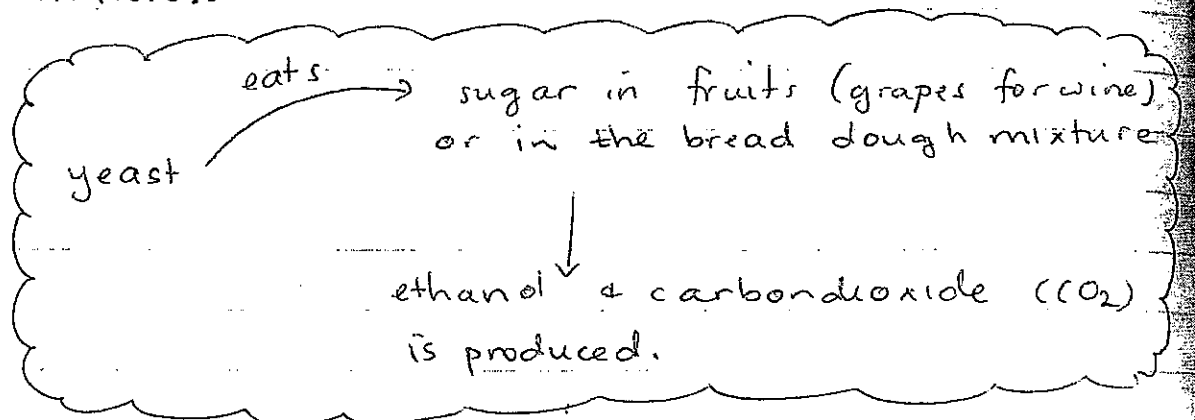 eats
sugar in fruits (grapes for wine)
or in the bread dough mixture
yeast
ethanol & carbondioxide (CO₂)
is produced.